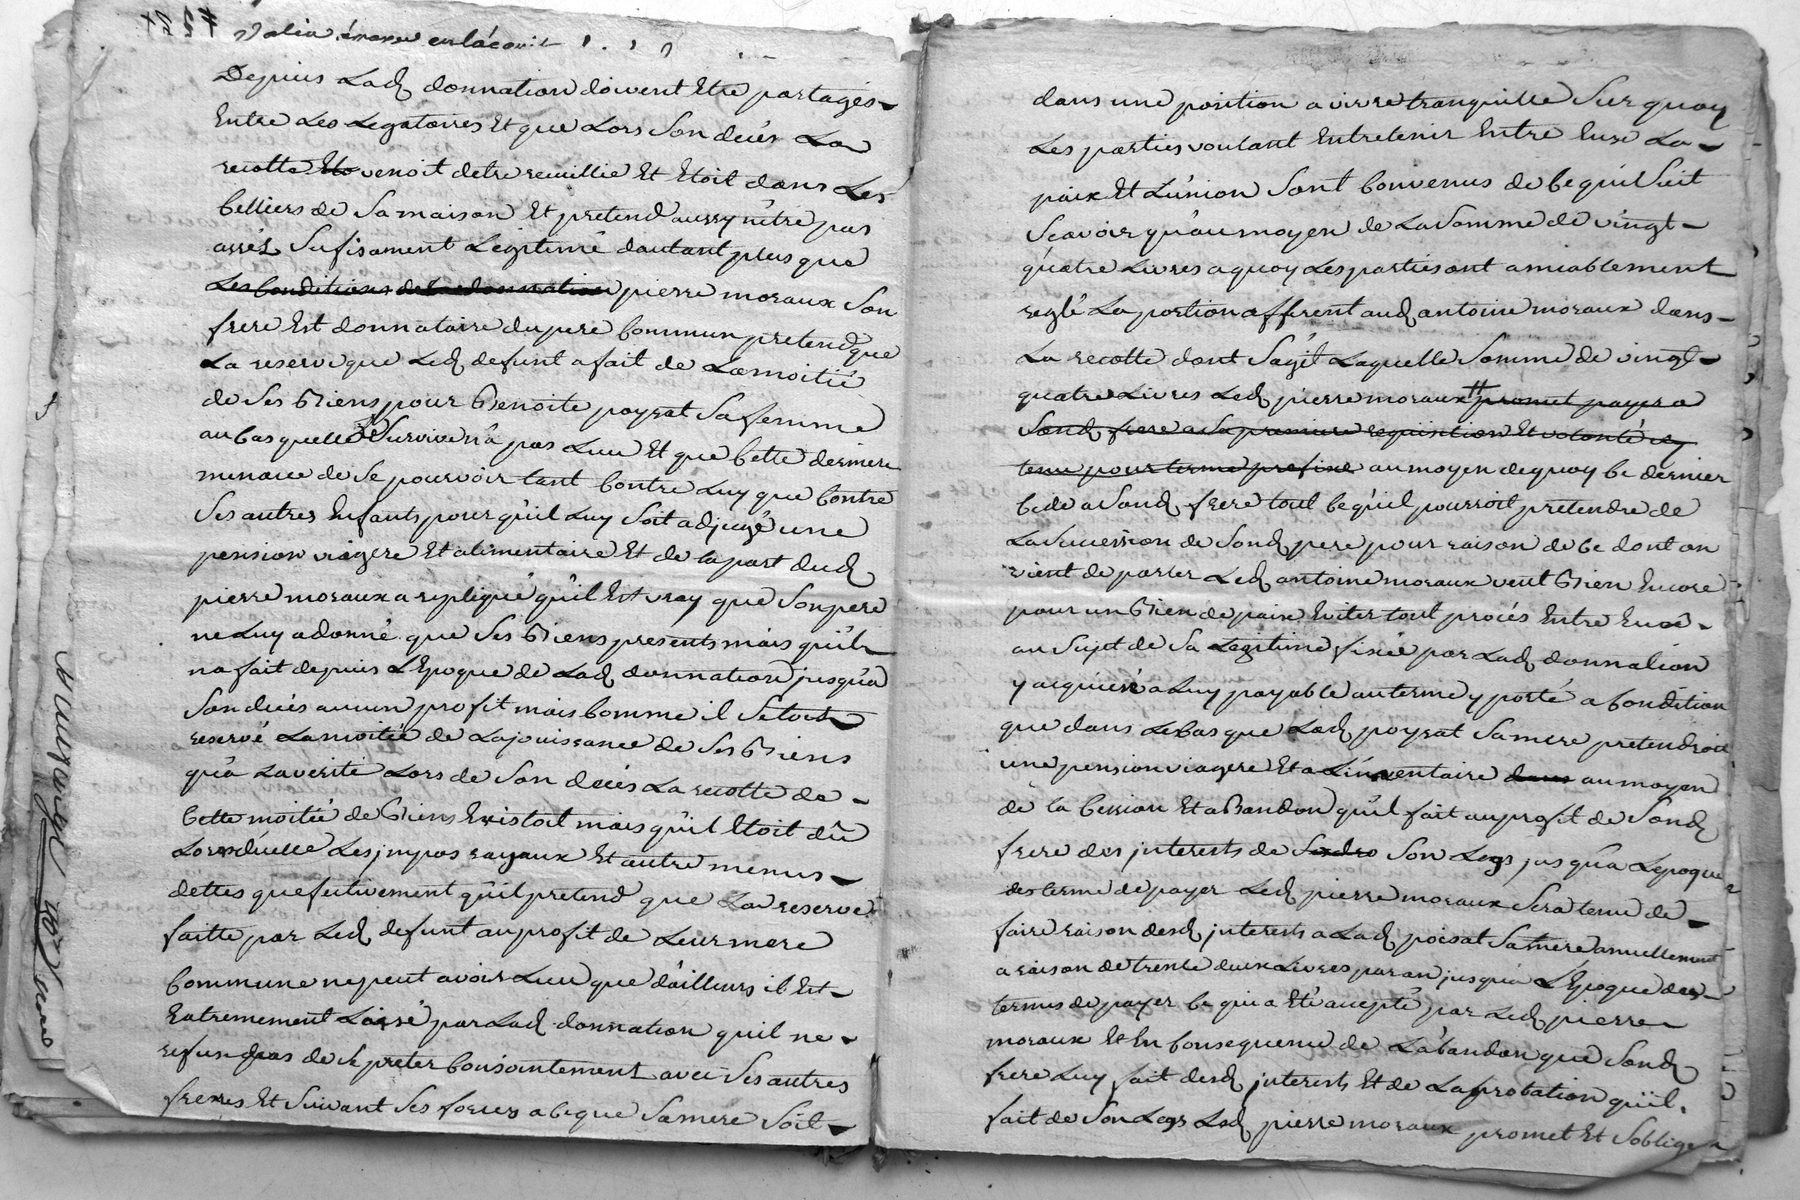 Depuis Lad donnation doivent Etre partagés
Entre Les Legatoires Et que Lors Son deces La
recotte venoit detre recuillie Et Etoit dans Les
Celliers de Sa maison Et pretend aussy nêtre pas
assés Sufisament Legitimé dautant plus que
Les Conditions de la donnation pierre moraux Son
frere Est donnataire du pere Commun pretend que
La reserve que Led defunt a fait de La moitié
de Ses Biens pour Benoite poyrat Sa femme
au Cas quelle Le Survive na pas Lieu Et que Cette derniere
menace de Se pourvoir tant Contre Luy que Contre
Ses autres Enfants pour quil Luy Soit adjugé une
pension viagere Et alimentaire Et de la part dud
pierre moraux a repliqué quil Est vray que Son pere
ne Luy a donné que Ses Biens presents mais quil
na fait depuis L'Epoque de Lad donnation jusqua
Son deces aucun profit mais Comme il Setoit
reservé La moitié de La jouissance de Ses Biens
qua La verité Lors de Son deces La recotte de
Cette moitié de Biens Existoit mais quil Etoit dû
Lors dicelle Les jmpos rayaux Et autre menus
dettes quefectivement quil pretend que La reserve
faitte par Led defunt au profit de Leur mere
Commune ne peut avoir Lieu que dailleurs il Est
Extremement Laisé par Lad donnation quil ne
refuse pas de Se preter Conjointement avec Ses autres
freres Et Suivant Ses forces a Ce que Sa mere Soit
dans une position a vivre tranquille Sur quoy
Les parties voulant Entretenir Entre Eux La
paix Et L'union Sont Convenus de Ce qui Suit
Scavoir qu'au moyen de La Somme de vingt
quatre Livres a quoy Les parties ont amiablement
reglé La portion afferent aud antoine moraux dans
La recotte dont Sagit Laquelle Somme de vingt
quatre Livres Led pierre moraux # promet payer a
Sond frere a Sa premiere requisition Et volonté icy
tenu pour terme prefixe au moyen de quoy Ce dernier
Cede a Sond frere tout Ce quil pourroit pretendre de
La Succession de Sond pere pour raison de Ce dont on
vient de parler Led antoine moraux veut Bien Encore
pour un Bien de paix Eviter tout procés Entre Eux
au Sujet de Sa Legitime fixée par Lad donnation
y acquiescé a Luy payable au terme y porté a Condition
que dans Le Cas que Lad poyrat Sa mere pretendroit
une pension viagere Et a L'inventaire dans au moyen
de la Cession Et aBandon quil fait au profit de Sond
frere des jnterests de Son Legs jusqua L'epoque
des terme de payer Led pierre moraux Sera tenu de
faire raison desd jnterests a Lad poirat Sa mere annuellement
a raison de trente deux Livres par an jusqua L'Epoque des
termes de payer Ce qui a Eté accepté par Led pierre
moraux Et En Consequence de L'abandon que Sond
frere Luy fait desd jnterests Et de Laprobation quil
fait de Son Legs Led pierre moraux promet Et Soblige